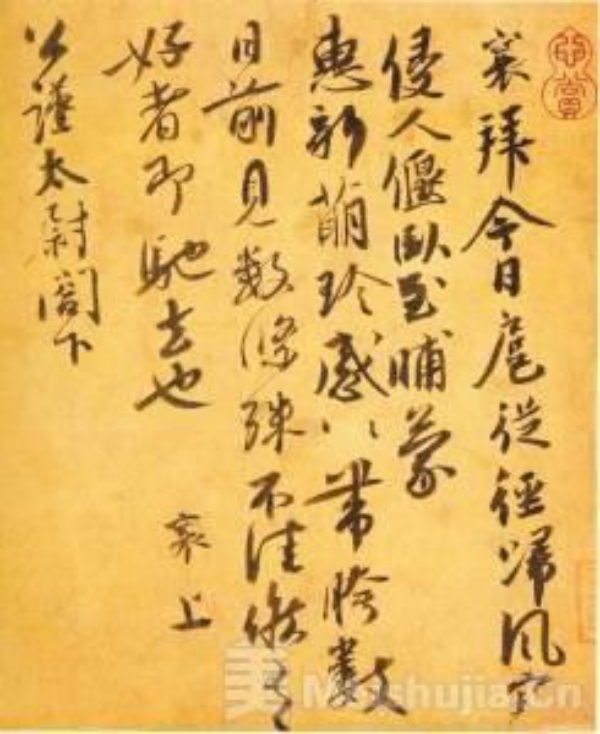 襄拜今日扈從徑歸風寒
侵人偃臥至晡蒙
惠新萌珍感〻帶胯數
日前見數條殊不佳候有
好者即馳去也
襄上
公謹太尉閤下
美 Meishujia.Cn